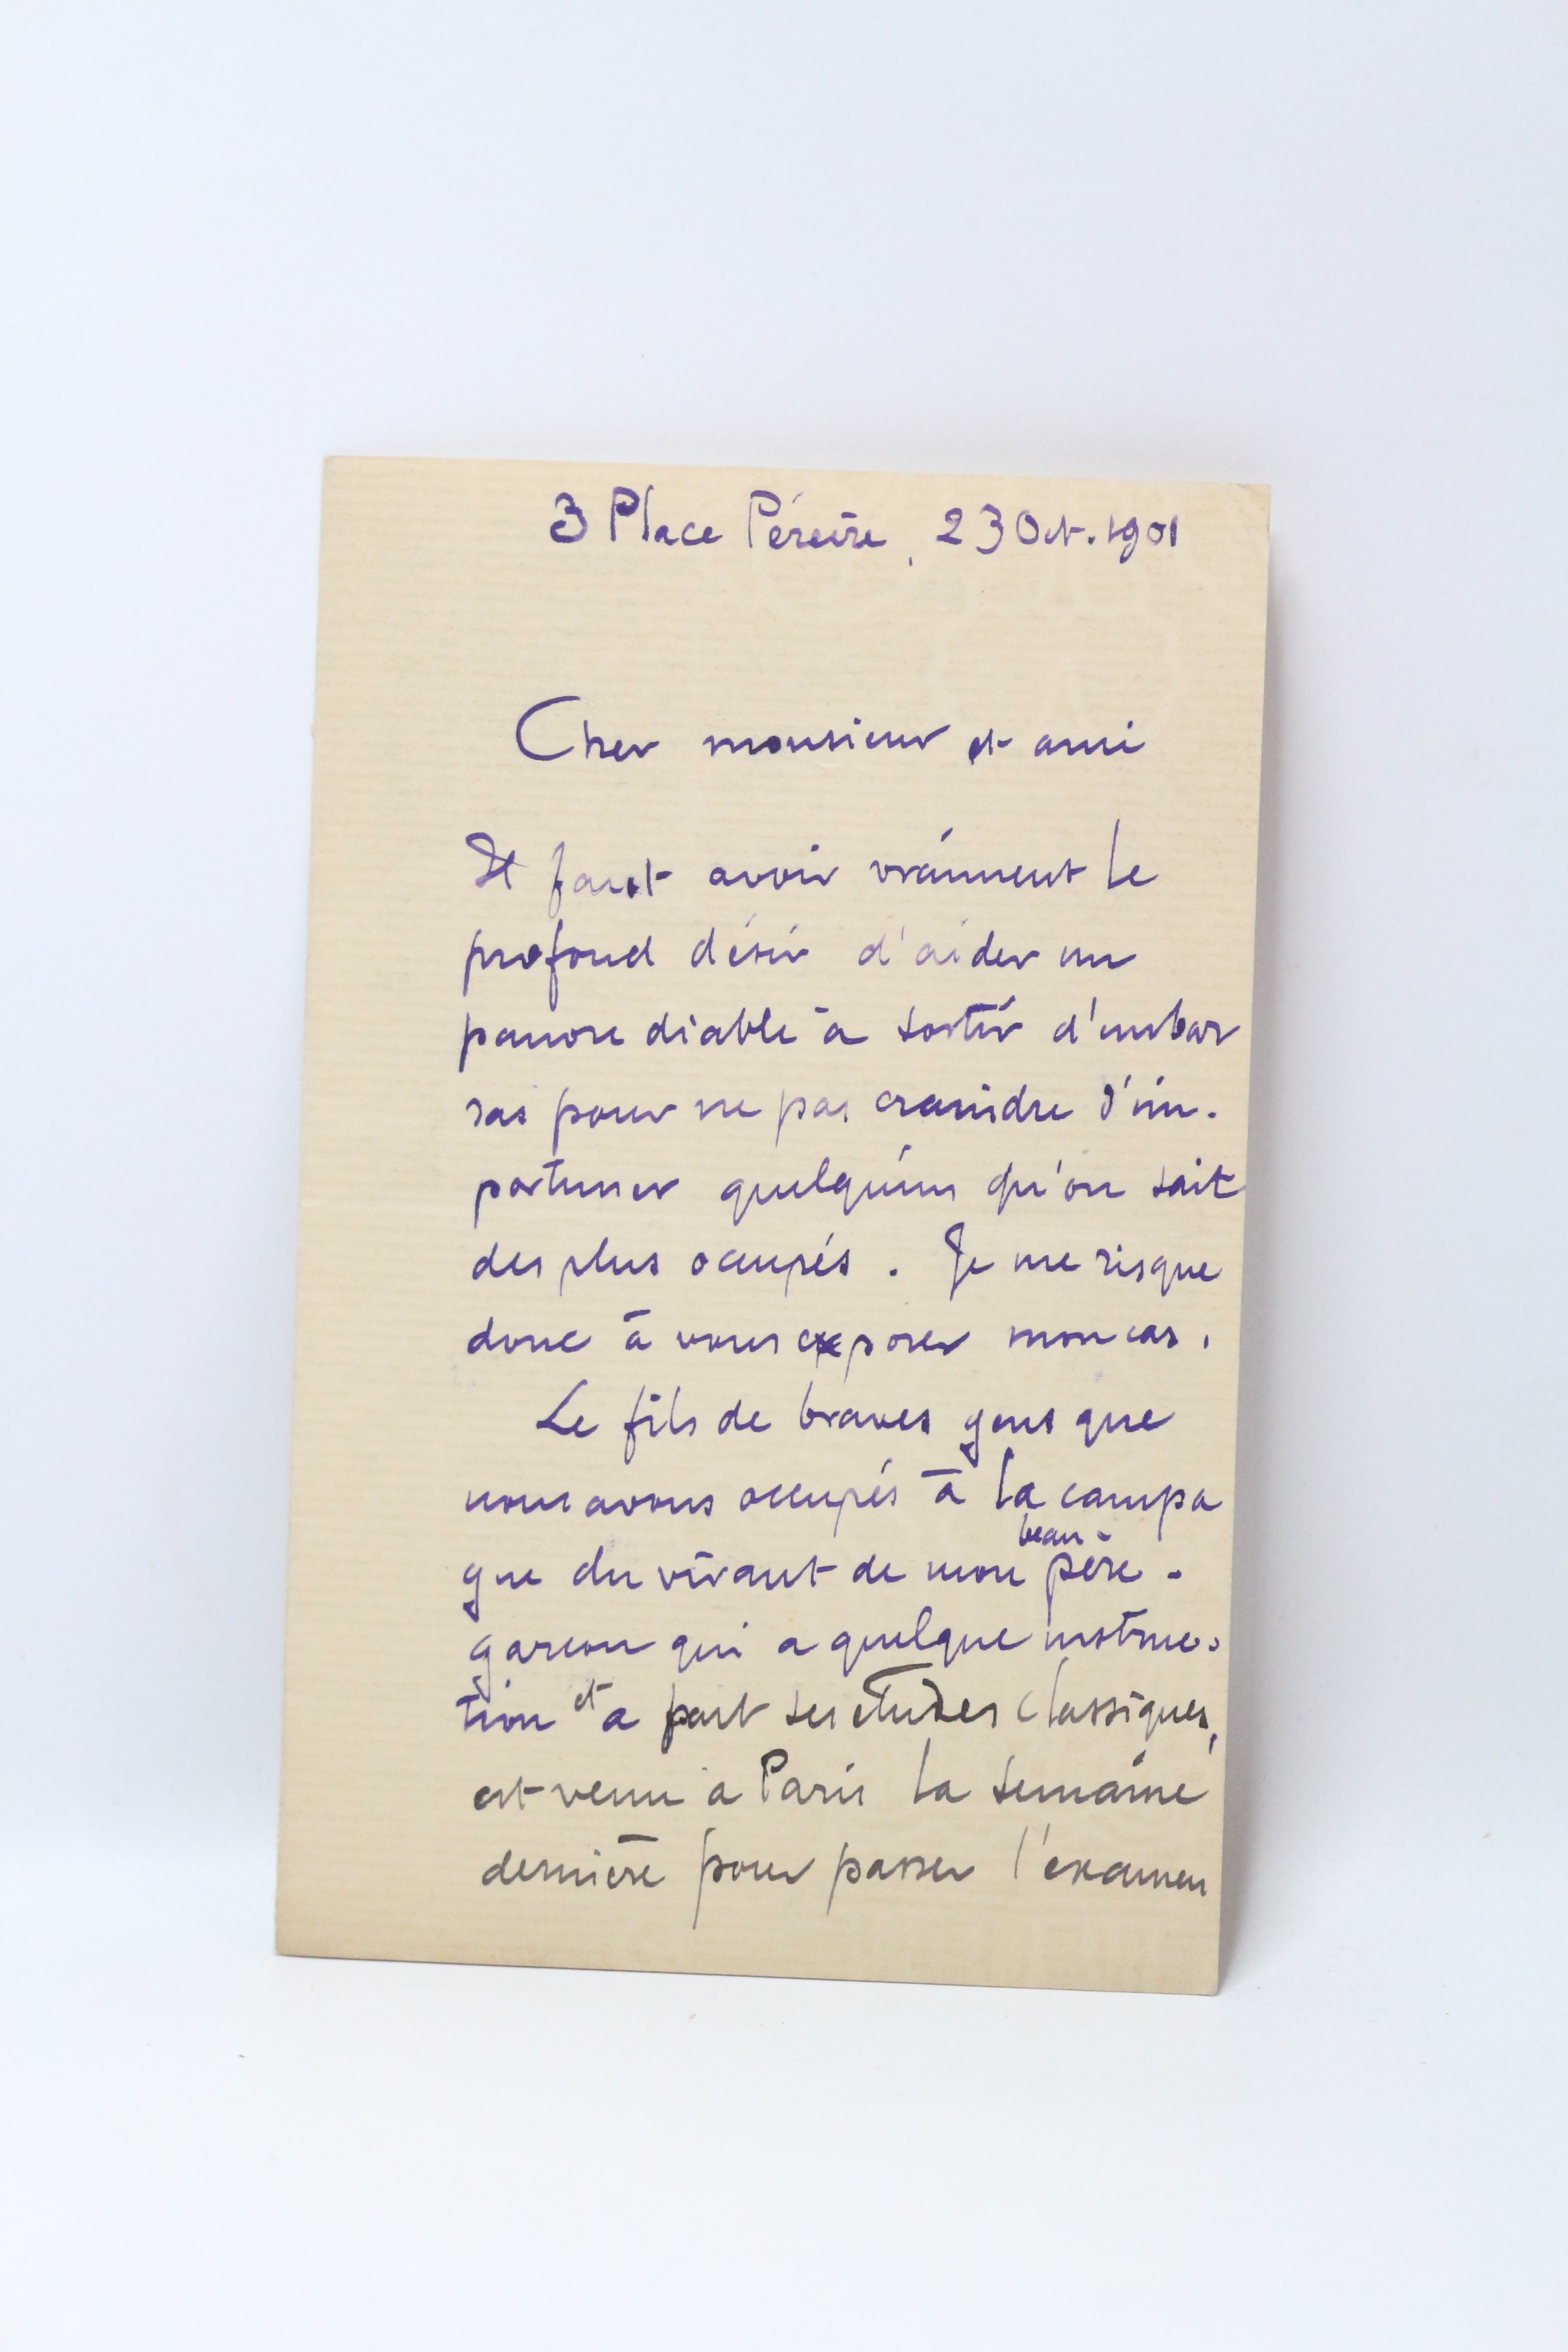 3 Place Péreire, 23 Oct. 1901
Cher monsieur et ami
Il faut avoir vraiment le
profond désir d'aider un
pauvre diable à sortir d'embar
ras pour ne pas craindre d'im-
portuner quelqu'un qu'on sait
des plus occupés. Je me risque
donc à vous exposer mon cas.
Le fils de braves gens que
nous avons occupés à la campa
beau-
gne du vivant de mon père -
garcon qui a quelque instruc-
et
tion a fait ses études classiques,
est venu à Paris la semaine
dernière pour passer l'examen